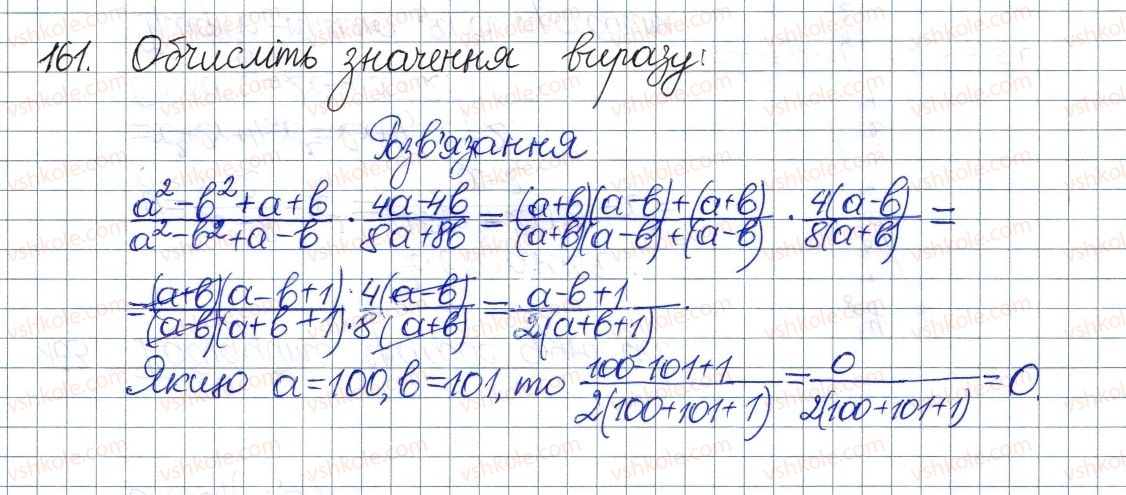 161. Обчисліть значення виразу:
Розв'язання
(a²-b²+a+b)/(a²-b²+a-b) · (4a-4b)/(8a+8b) = ((a+b)(a-b)+(a+b))/((a+b)(a-b)+(a-b)) · 4(a-b)/8(a+b) =
= ((a+b)(a-b+1)·4(a-b))/((a-b)(a+b+1)·8(a+b)) = (a-b+1)/(2(a+b+1)).
Якщо a=100, b=101, то (100-101+1)/(2(100+101+1)) = 0/(2(100+101+1)) = 0.
vshkole.com